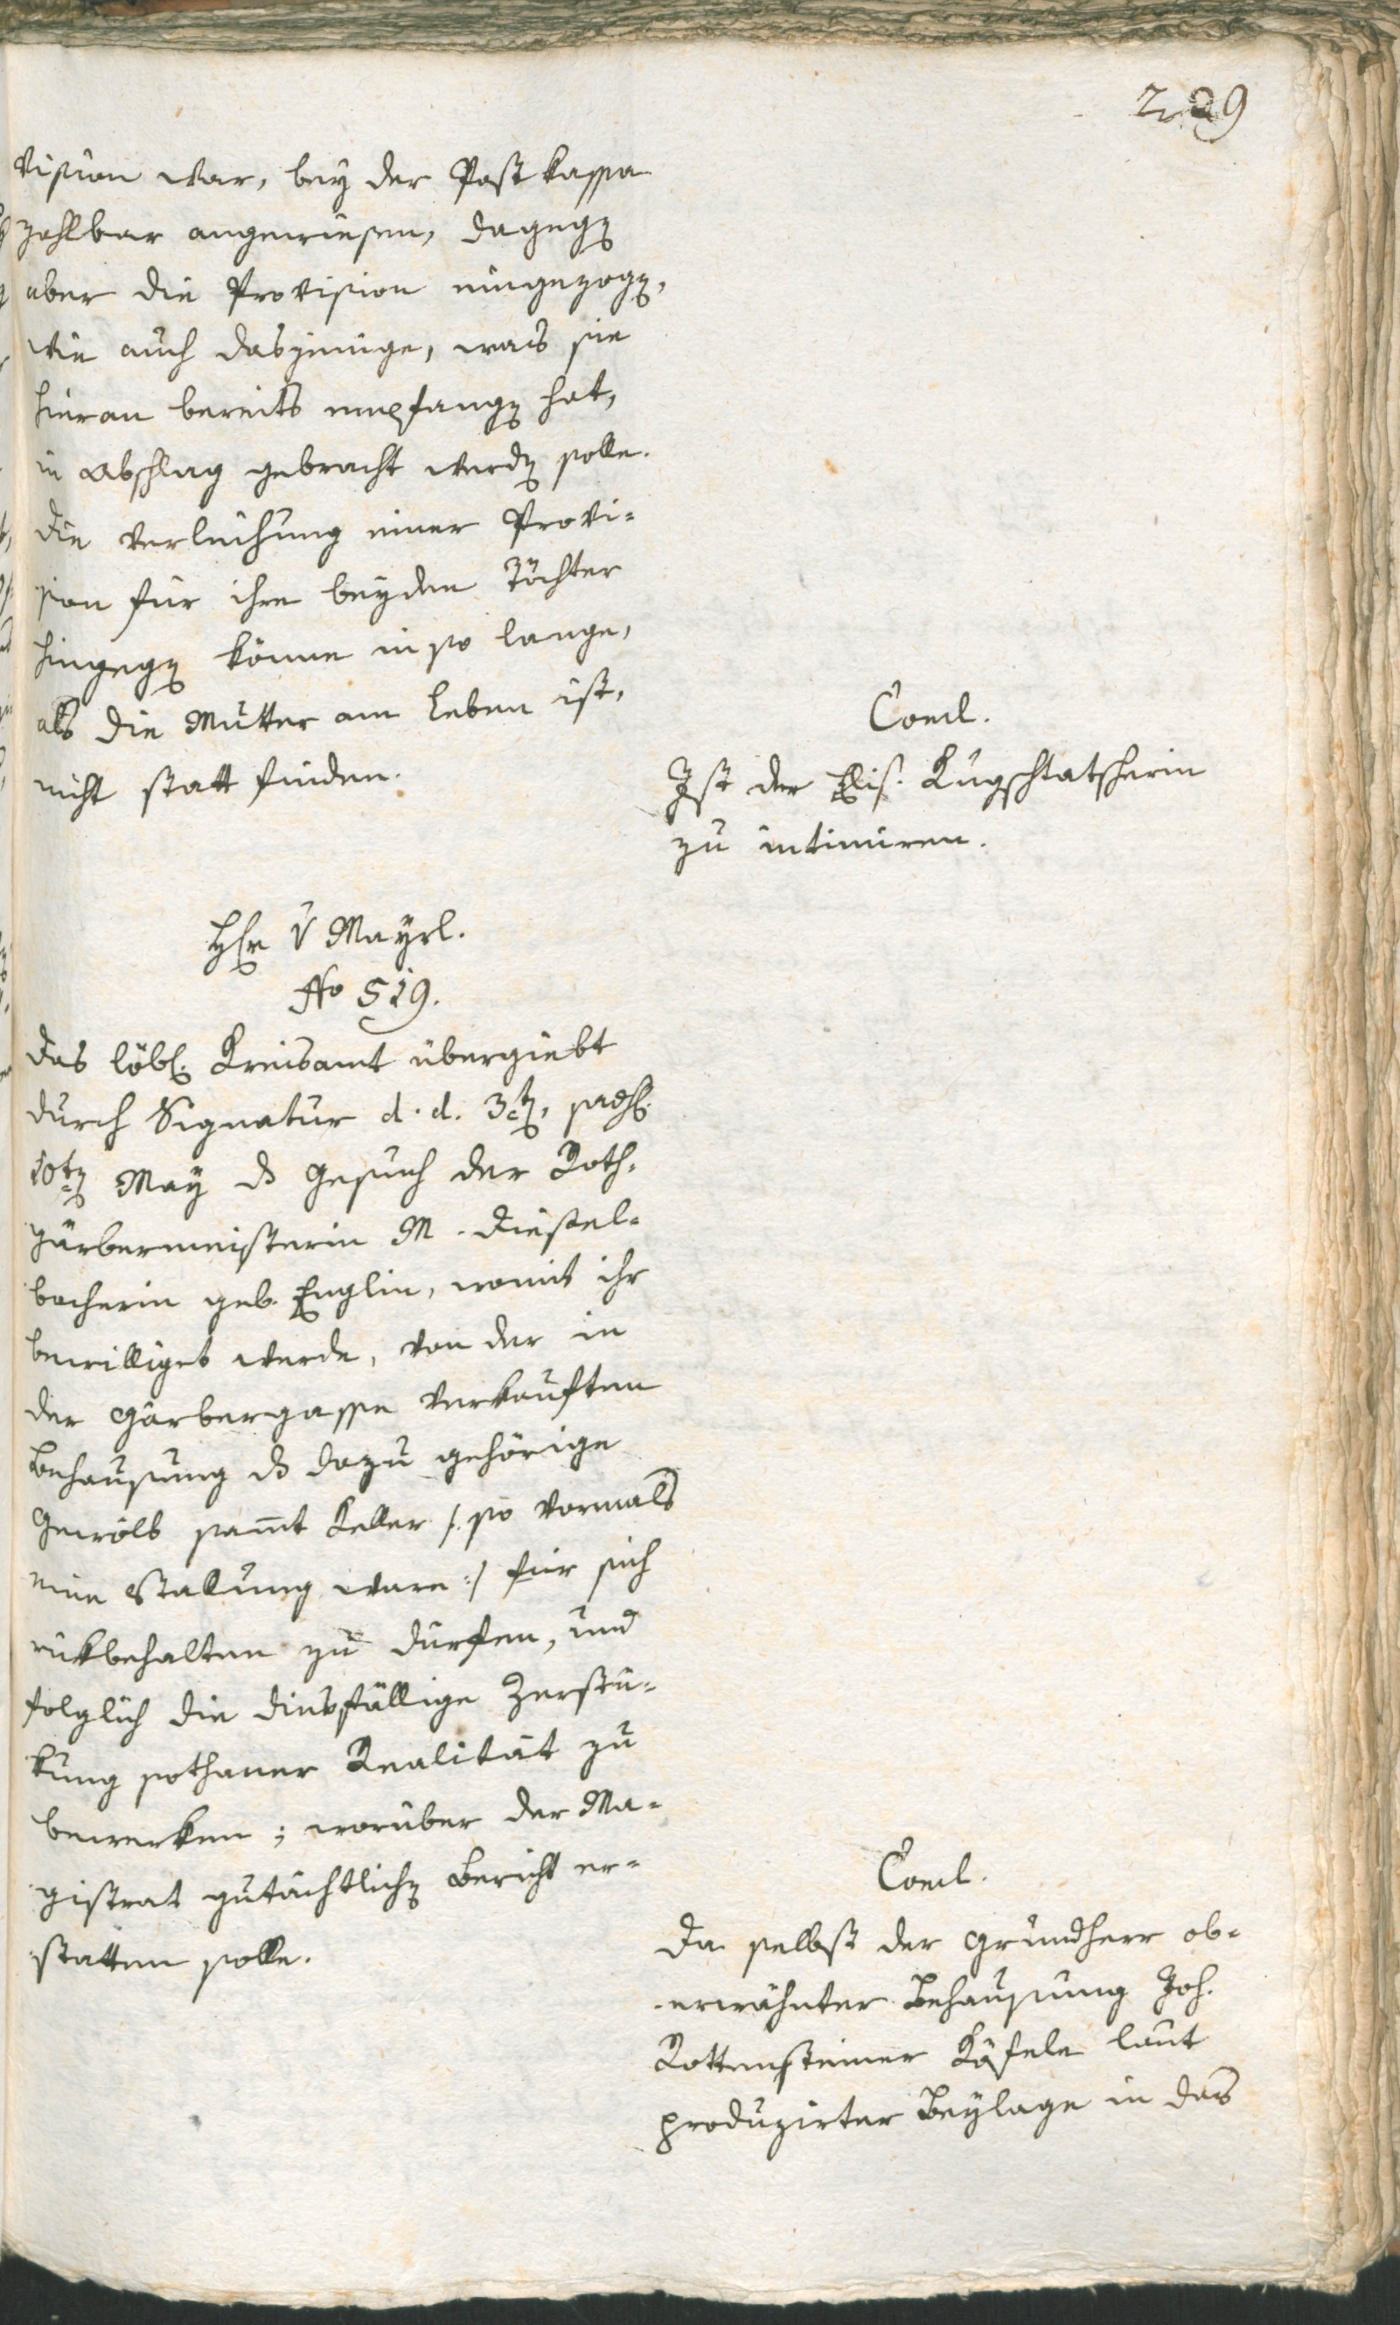 229
vision war, bey der Postkassa
zahlbar angewiesen, dagegen
aber die Provision eingezogen,
wie auch dasjenige, was sie
hieran bereits empfangen hat,
in Abschlag gebracht werden solle.
die Verleichung einer Provi-
sion für ihre beyden Töchter
hingegen könne in so lange,
als die Mutter am Leben ist,
nicht statt finden.
Concl.
Ist der Elis. Kugstatscherin
zu intimiren.
Hr v Mayrl.
No 519.
Das löbl. Kreisamt übergiebt
durch Signatur d. d. 3ten, praes.
10ten May das Gesuch der Roth-
gärbermeisterin M. Diestel-
bacherin geb. Englin, womit ihr
bewilliget werde, von der in
der Gärbergasse verkauften
Behausung das dazu gehörige
Gewölb sammt Keller /: so vormals
eine Stallung ware :/ für sich
rükbehalten zu dürfen, und
folglich die diesfällige Zerstü-
kung sothaner Realität zu
bewerken; worüber der Ma-
gistrat gutächtlichen Bericht er-
statten solle.
Concl.
Da selbst der Grundherr ob-
erwähnter Behausung Joh.
Rottensteiner Köfele laut
produzirter Beylage in das